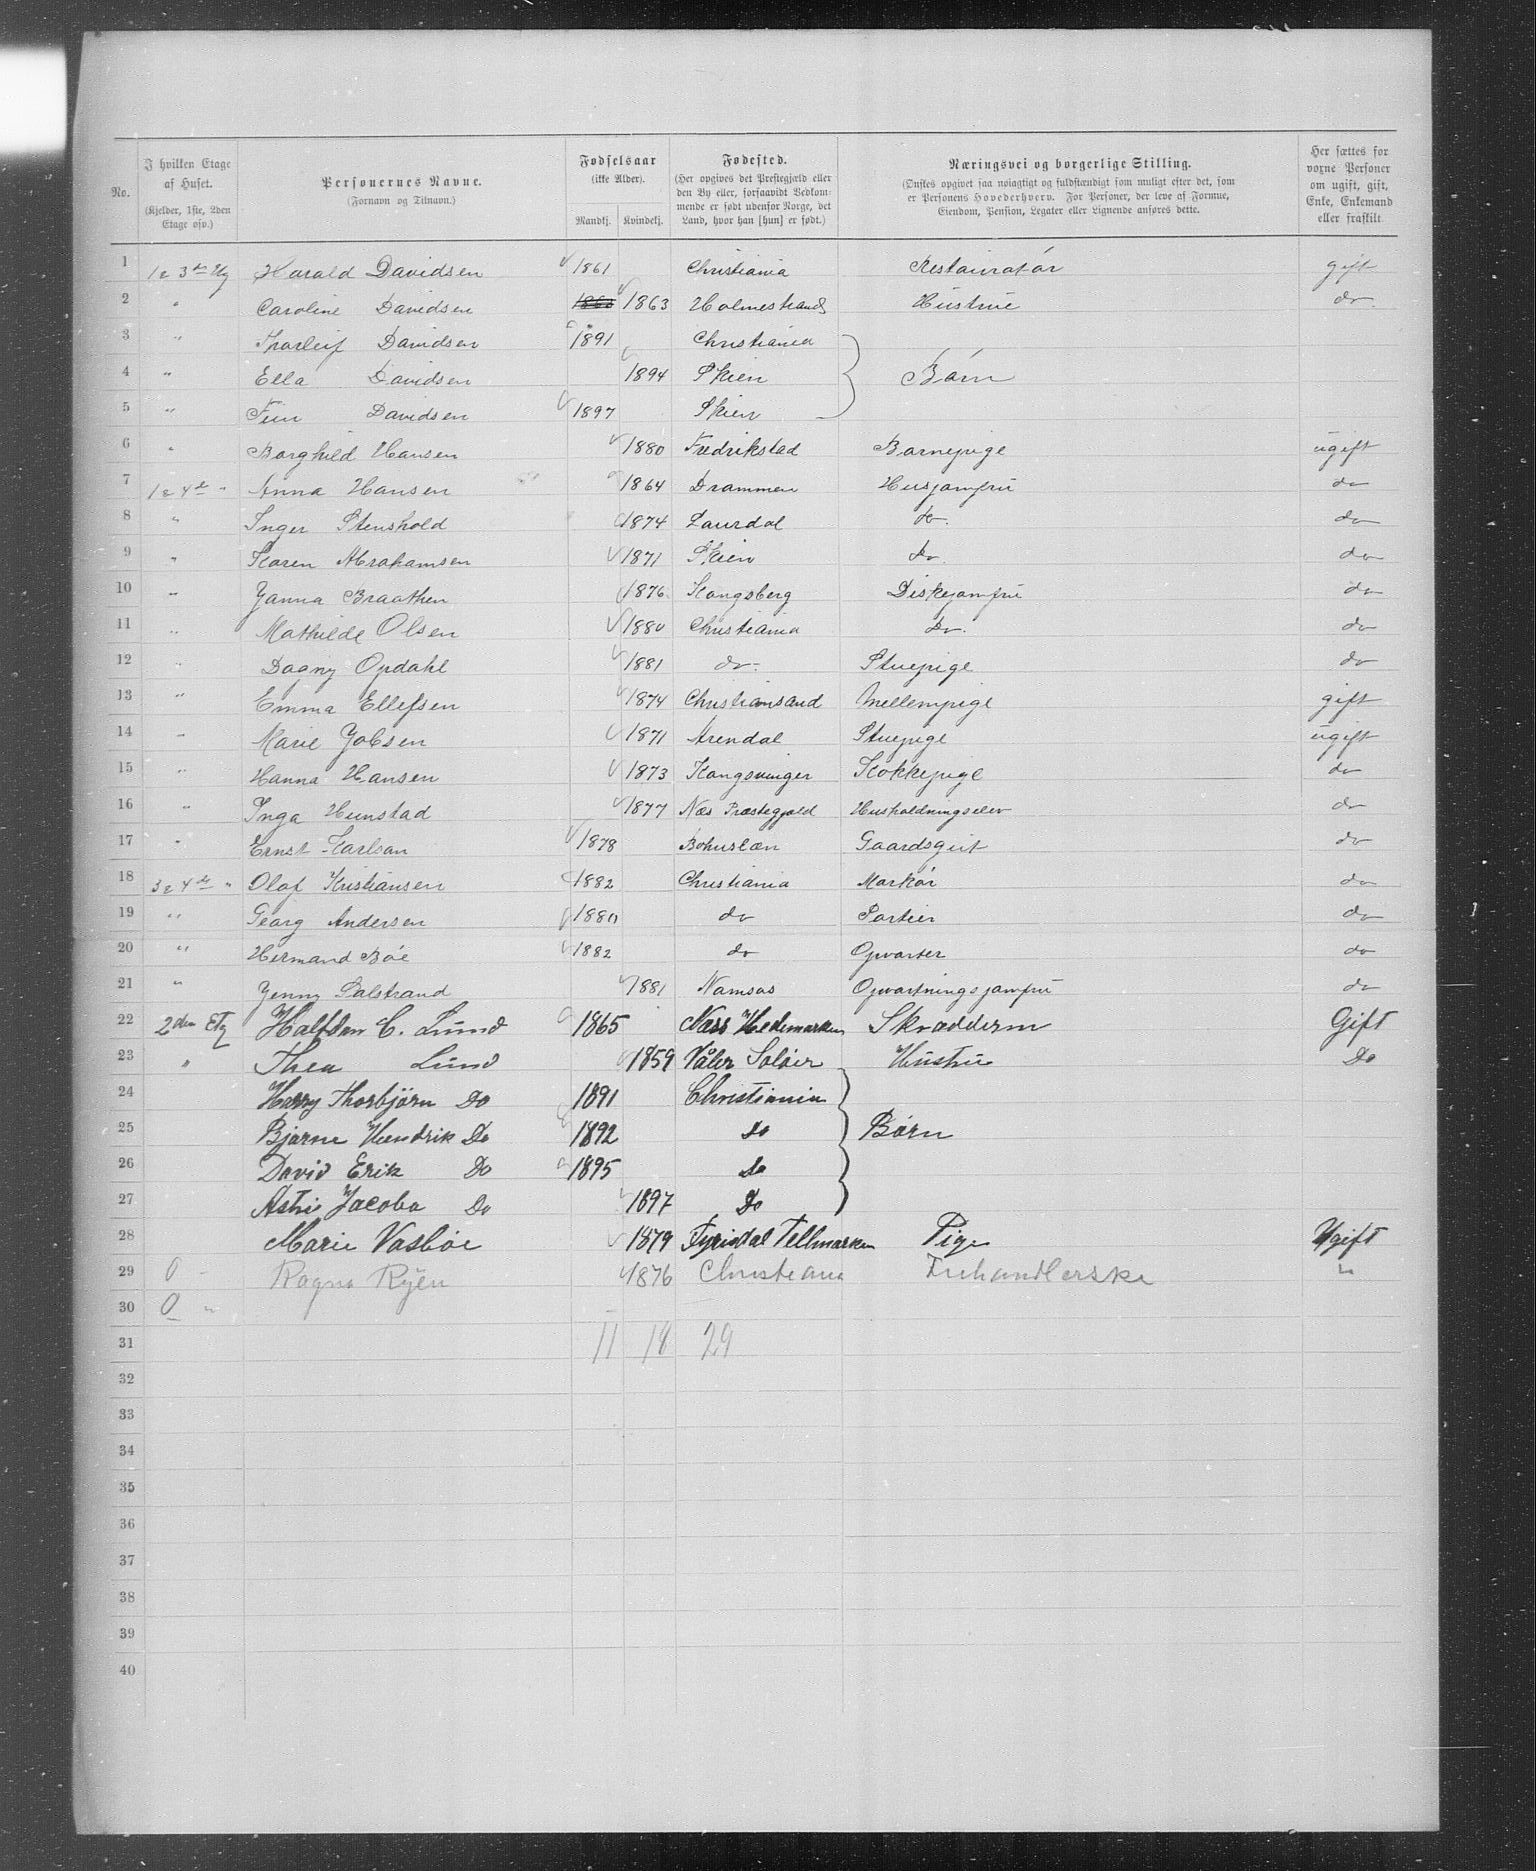 No.
I hvilken Etage af Huset. (Kjelder, 1ste, 2den Etage osv.)
Personernes Navne. (Fornavn og Tilnavn.)
Fødselsaar (ikke Alder). Mandkj. Kvindekj.
Fødested. (Her opgives det Prestegjæld eller den By eller, forsaavidt Vedkommende er født udenfor Norge, det Land, hvor han [hun] er født.)
Næringsvei og borgerlige Stilling. (Ønskes opgivet saa nøiagtigt og fuldstændigt som muligt efter det, som er Personens Hovederhverv. For Personer, der leve af Formue, Eiendom, Pension, Legater eller Lignende anføres dette.)
Her sættes for voxne Personer om ugift, gift, Enke, Enkemand eller fraskilt.
1 1 & 3die Etg Harald Davidsen 1861 Christiania Restauratør gift
2 " Caroline Davidsen 1863 Holmestrand Hustrue do.
3 " Thorleif Davidsen 1891 Christiania
4 " Ella Davidsen 1894 Skien Børn
5 " Finn Davidsen 1897 Skien
6 " Borghild Hansen 1880 Fredrikstad Barnepige ugift
7 1 & 4de " Anna Hansen 1864 Drammen Husjomfru do
8 " Inger Stenshold 1874 Laurdal do. do
9 " Karen Abrahamsen 1871 Skien do. do
10 " Janna Braathen 1876 Kongsberg Diskejomfru do
11 " Mathilde Olsen 1880 Christiania Do. do
12 " Dagny Opdahl 1881 do. Stuepige do
13 " Emma Ellefsen 1874 Christiansand Mellempige gift
14 " Marie Jobsen 1871 Arendal Stuepige ugift
15 " Hanna Hansen 1873 Kongsvinger Kokkepige do
16 " Inga Hunstad 1877 Næs Præstegjæld Husholdningselev do
17 " Ernst Karlson 1878 Bohuslæn Gaardsgut do
18 3 & 4de " Olaf Kristiansen 1882 Christiania Markør do
19 " Georg Andersen 1880 do Portier do
20 " Hermand Bøe 1882 do Opvarter do
21 " Jenny Salstrand 1881 Namsos Opvartningsjomfru do
22 2den Etg Halfdan C. Lund 1865 Næss Hedemarken Skræddderm Gift
23 " Thea Lund 1859 Våler Soløer Hustru Do
24 Harry Thorbjørn Do 1891 Christiania
25 Bjarne Hendrik Do 1892 Do Børn
26 David Erik Do 1895 Do
27 Astri Jacoba Do 1897 Do
28 Marie Vasbøe 1879 Fyrisdal Tellmarken Pige Ugift
29 0 - Ragna Ryen 1876 Christiania Fruhandlerske "
30 0 "
31 11 18 29
32
33
34
35
36
37
38
39
40